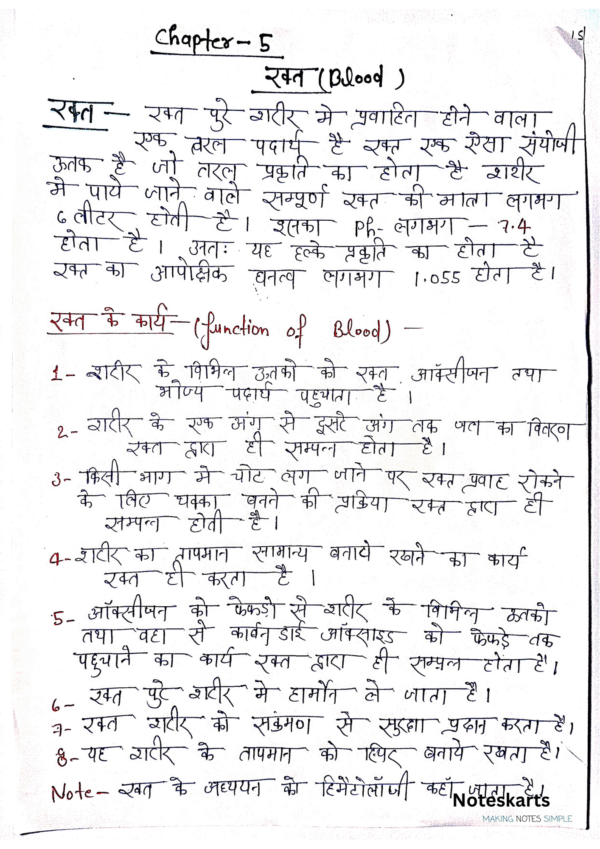 Chapter - 5
15
रक्त (Blood)
रक्त - रक्त पुरे शरीर मे प्रवाहित होने वाला
एक तरल पदार्थ है रक्त एक ऐसा संयोजी
ऊतक है जो तरल प्रकृति का होता है शरीर
मे पाये जाने वाले सम्पूर्ण रक्त की माता लगभग
6 लीटर होती है। इसका Ph- लगभग - 7.4
होता है। अतः यह हल्के प्रकृति का होता है
रक्त का आपेक्षिक घनत्व लगभग 1.055 होता है।
रक्त के कार्य - (function of Blood) -
1- शरीर के विभिन्न ऊतको को रक्त ऑक्सीजन तथा
भोज्य पदार्थ पहुचाता है।
2- शरीर के एक अंग से दूसरे अंग तक जल का वितरण
रक्त द्वारा ही सम्पन्न होता है।
3- किसी भाग मे चोट लग जाने पर रक्त प्रवाह रोकने
के लिए थक्का बनने की प्रक्रिया रक्त द्वारा ही
सम्पन्न होती है।
4- शरीर का तापमान सामान्य बनाये रखने का कार्य
रक्त ही करता है।
5- ऑक्सीजन को फेफडो से शरीर के विभिन्न ऊतको
तथा वहा से कार्वन डाई ऑक्साइड को फेफडे तक
पहुचाने का कार्य रक्त द्वारा ही सम्पन्न होता है।
6- रक्त पुरे शरीर मे हार्मोन ले जाता है।
7- रक्त शरीर को संक्रमण से सुरक्षा प्रदान करता है।
8- यह शरीर के तापमान को स्थिर बनाये रखता है।
Note- रक्त के अध्ययन को हिमैटोलॉजी कहाँ जाता है।
Noteskarts
MAKING NOTES SIMPLE